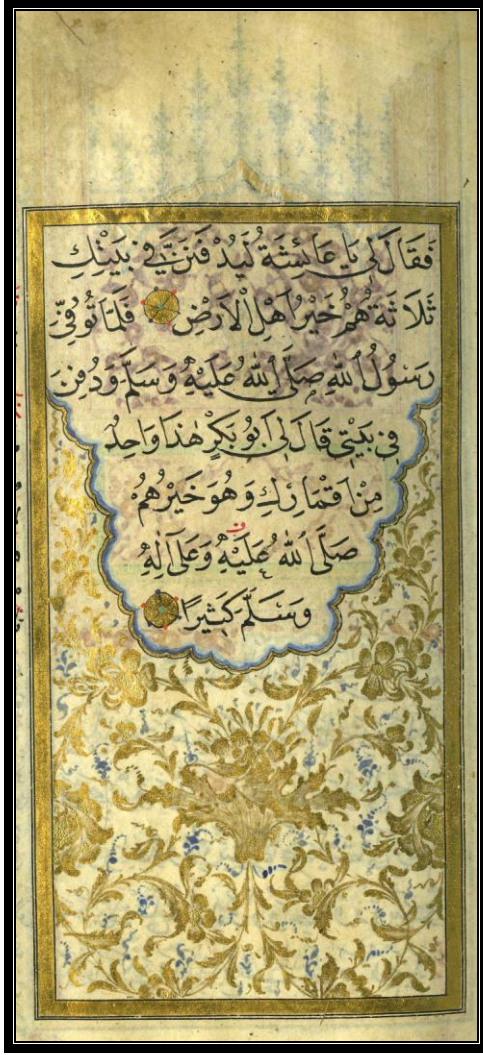 فَقَالَ لِي يَا عَائِشَةُ لَيُدْفَنَنَّ فِي بَيْتِكِ
ثَلَاثَةٌ هُمْ خَيْرُ اَهْلِ الْاَرْضِ فَلَمَّا تُوُفِّيَ
رَسُولُ اللّٰهِ صَلَّى اللّٰهُ عَلَيْهِ وَسَلَّمَ وَدُفِنَ
فِي بَيْتِي قَالَ لِي اَبُو بَكْرٍ هٰذَا وَاحِدٌ
مِنْ اَقْمَارِكِ وَهُوَ خَيْرُهُمْ
صَلَّى اللّٰهُ عَلَيْهِ وَعَلٰى اٰلِهِ
وَسَلَّمَ كَثِيرًا